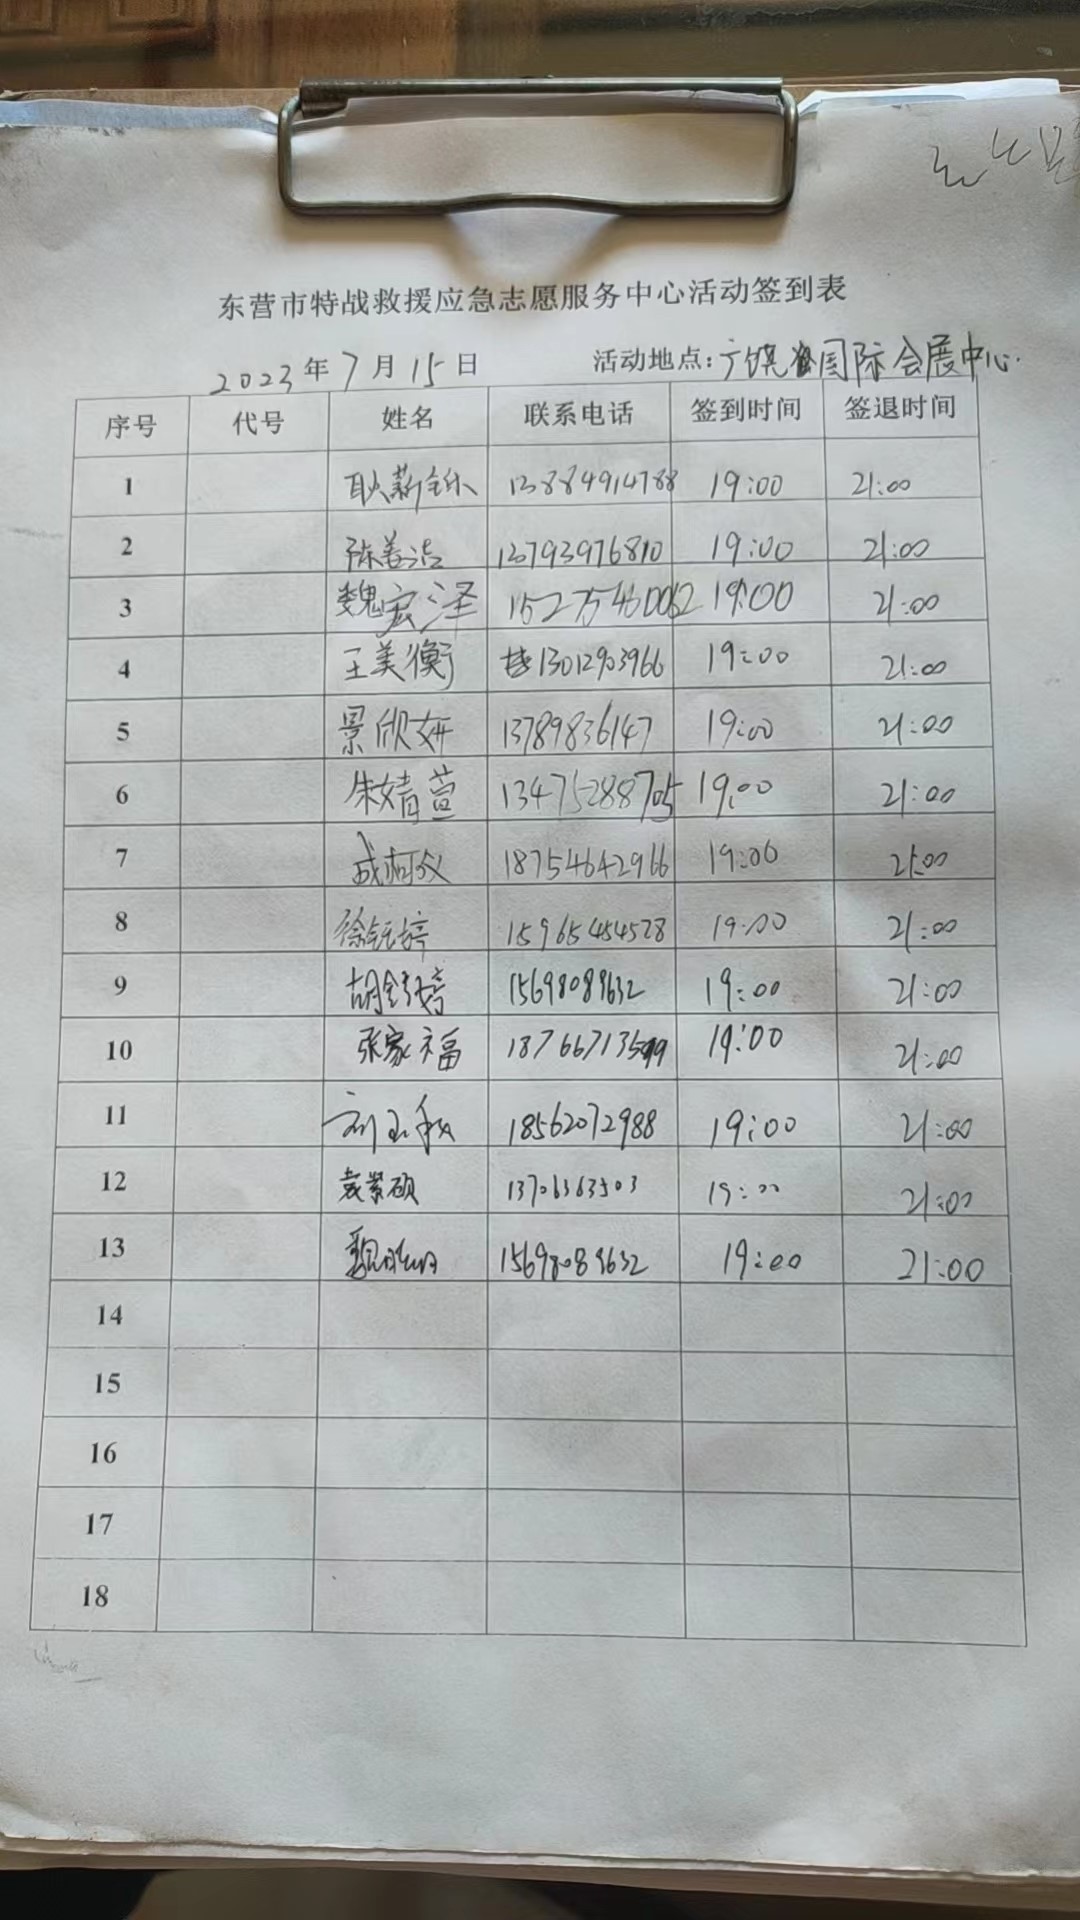 东营市特战救援应急志愿服务中心活动签到表
2023年7月15日 活动地点:广饶国际会展中心.
序号 代号 姓名 联系电话 签到时间 签退时间
1 耿薪 13884914788 19:00 21:00
2 陈姜洁 13793976810 19:00 21:00
3 魏宏泽 15275460062 19:00 21:00
4 王美衡 13012903966 19:00 21:00
5 景欣妍 13789836147 19:00 21:00
6 朱婧萱 13475288705 19:00 21:00
7 成柯仪 18754642966 19:00 21:00
8 徐钰婷 15965454528 19:00 21:00
9 胡 15698089632 19:00 21:00
10 张家福 18766713599 19:00 21:00
11 刘玉秋 18562072988 19:00 21:00
12 袁紫硕 13706363503 19:00 21:00
13 魏 15698089632 19:00 21:00
14
15
16
17
18